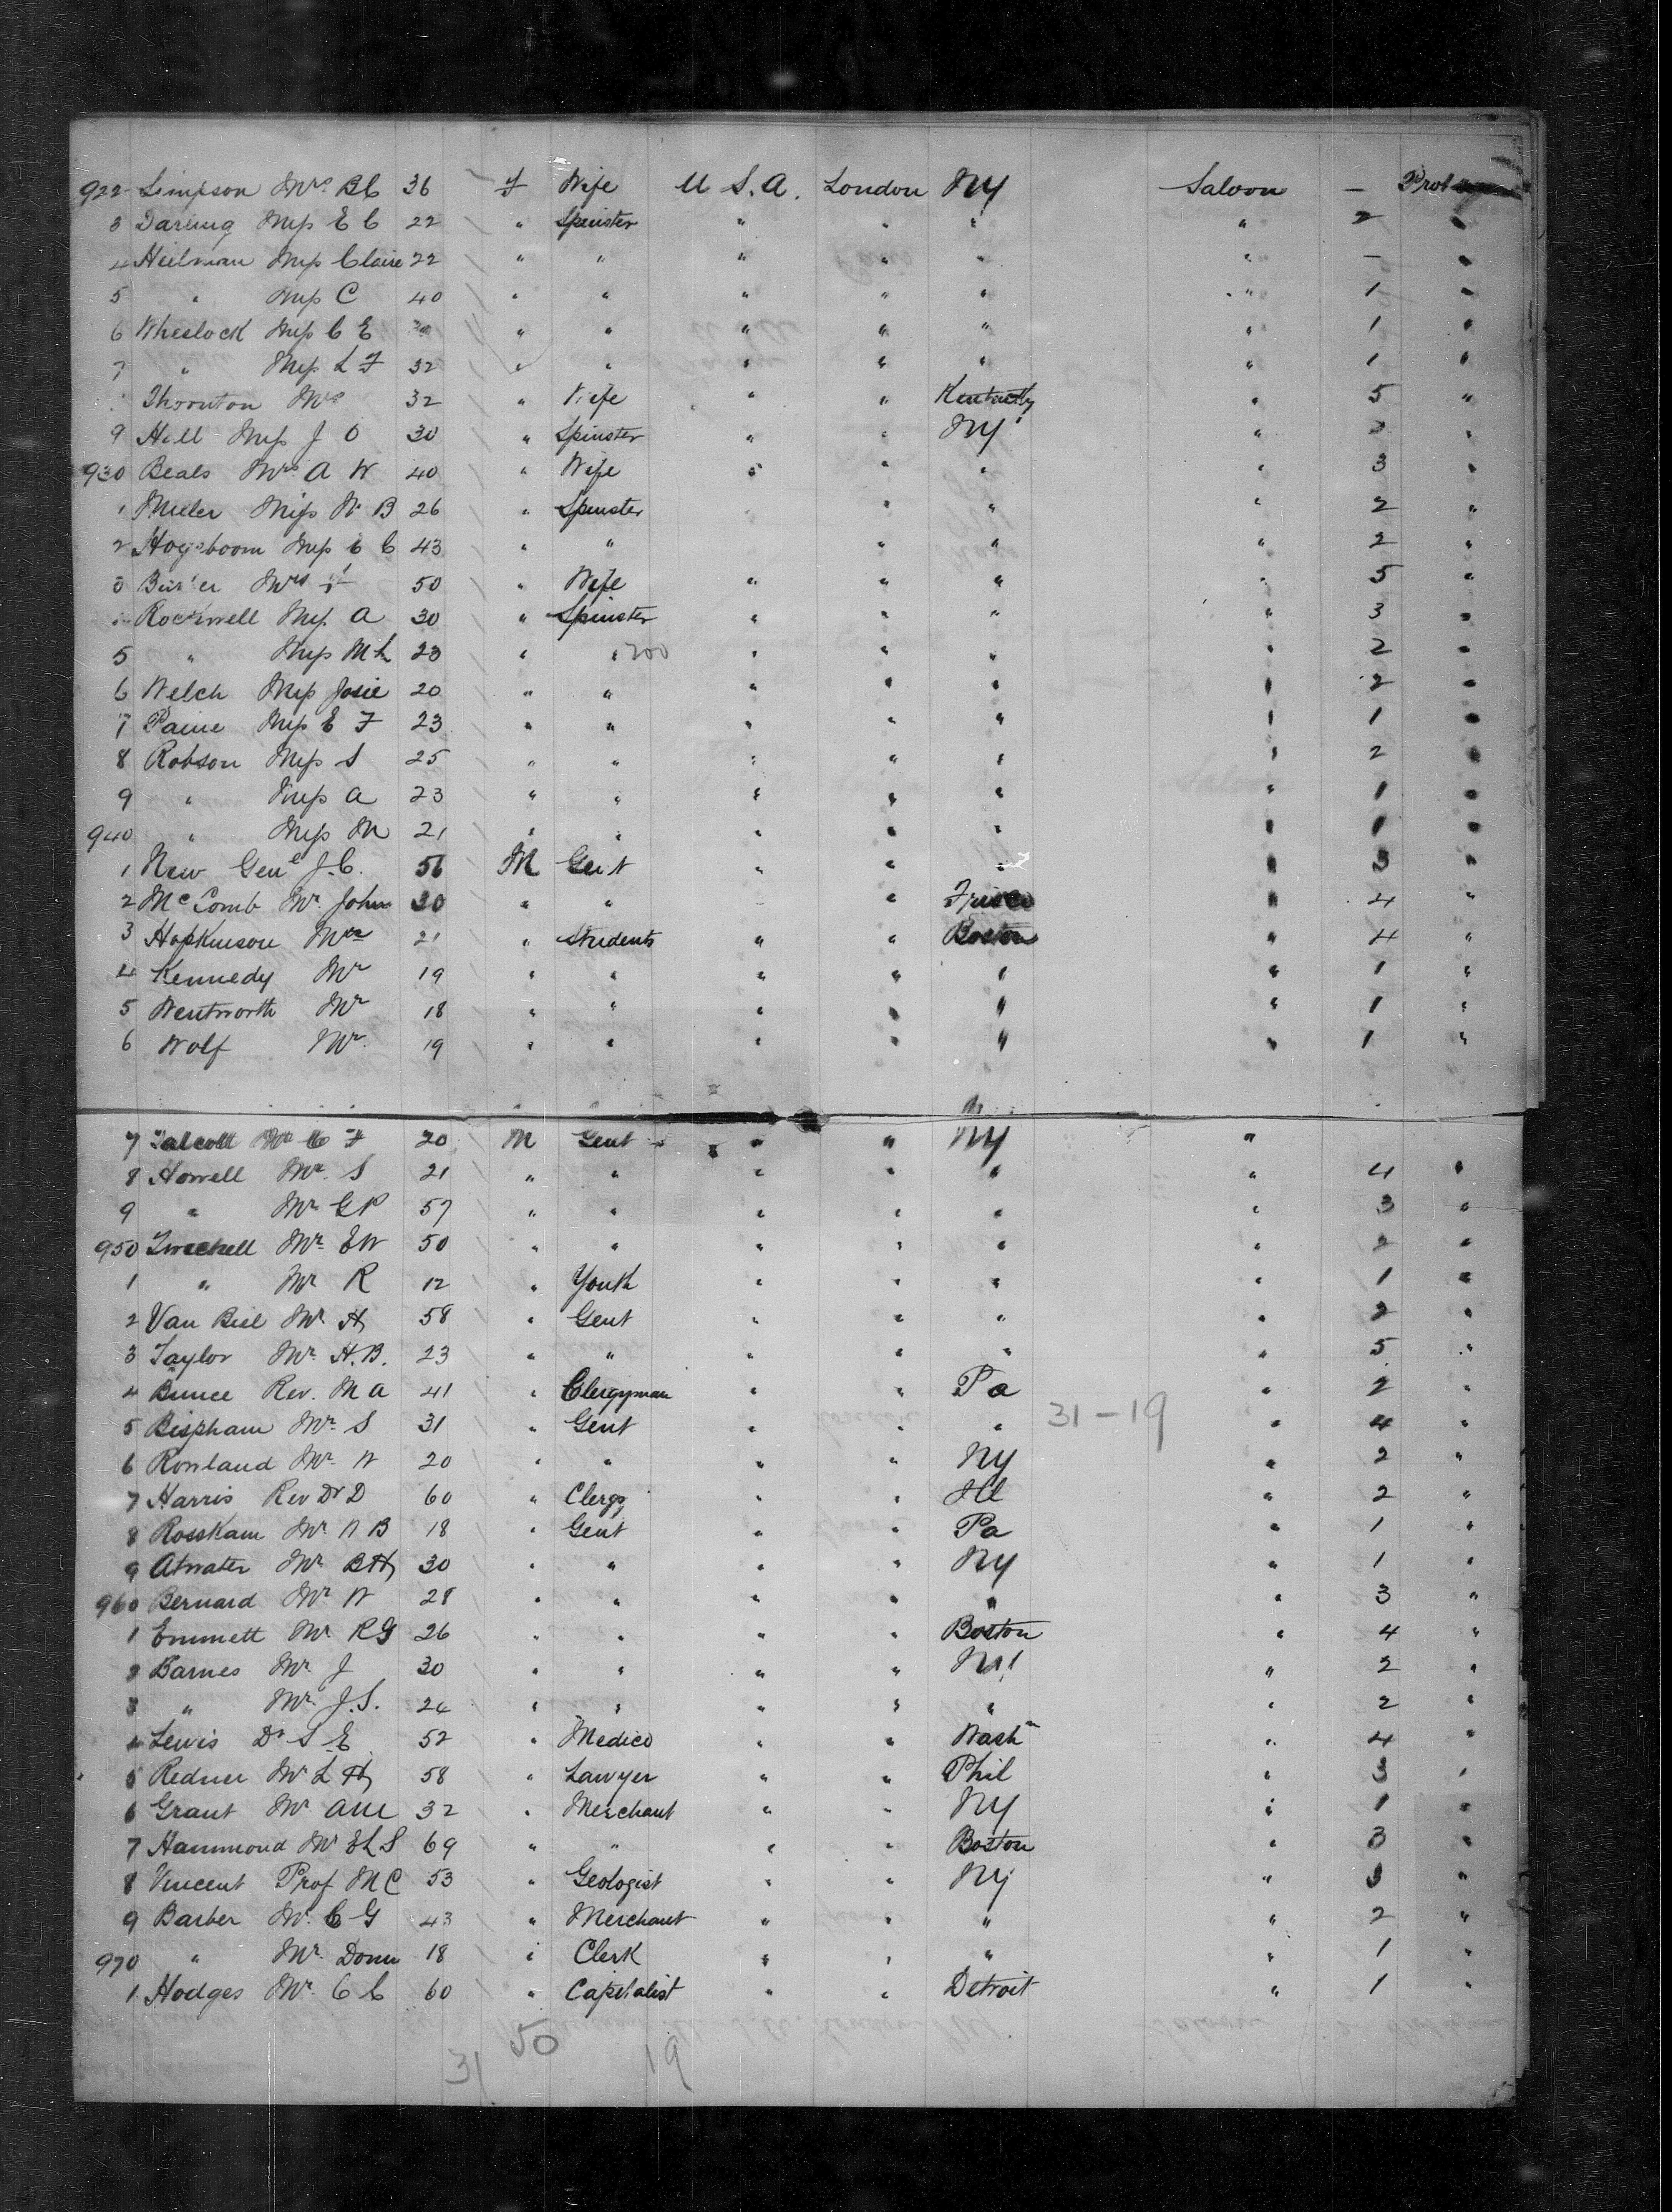 922 Simpson Mrs. B C 36 F Wife U S. A. London NY Saloon — Prob
3 Darling Miss E C 22 " Spinster " " " " 2 "
4 Heilman Miss Claire 22 " " " " " " — "
5 " Miss C 40 " " " " " " 1 "
6 Wheelock Miss C E " " " " " " 1 "
7 " Miss L F 32 " " " " " " 1 "
Thornton Mrs 32 " Wife " " Kentucky " 5 "
9 Hill Miss J O 30 " Spinster " " NY " "
930 Beals Mrs A W 40 " Wife " " " " 3 "
1 Miller Miss N B 26 " Spinster " " " 2 "
2 Hogeboom Miss C C 43 " " " " " 2 "
3 Mrs 50 " Wife " " " " 5 "
Rockwell Miss A 30 " Spinster " " " " 3 "
5 " Miss M L 23 " " 200 " " " " 2 "
6 Welch Miss Josie 20 " " " " " " 2 "
7 Paine Miss E F 23 " " " " " " 1 "
8 Robson Miss S 25 " " " " " " 2 "
9 " Miss A 23 " " " " " " 1 "
940 " Miss M 21 " " " " " " 1 "
1 New Genl J. C. 56 M Gent " " " " 3 "
2 McComb Mr. John 30 " " " Frisco " 4 "
3 Hopkinson 21 " Students " " Boston " 4 "
4 Kennedy Mr 19 " " " " " " 1 "
5 Wentworth Mr 18 " " " " " " 1 "
6 Wolf Mr. 19 " " " " " " 1 "
7 Talcott Mr 20 M Gent " " NY "
8 Howell Mr. S 21 " " " " " " 4 "
9 " Mr G P 57 " " " " " " 3 "
950 Twichell Mr. E W 50 " " " " " " 2 "
1 " Mr R 12 " Youth " " " " 1 "
2 Van Biel Mr H 58 " Gent " " " " 2 "
3 Taylor Mr. H. B. 23 " " " " " " 5 "
4 Bunce Rev. M A 41 " Clergyman " " Pa " 2 "
5 Bispham Mr. S 31 " Gent " " " 31-19 " 4 "
6 Rowland Mr. W 20 " " " " NY " 2 "
7 Harris Rev Dr D 60 " Clergy " " Ill " 2 "
8 Rosskam Mr. W B 18 " Gent " " Pa " 1 "
9 Atwater Mr. B H 30 " " " " NY " 1 "
960 Bernard Mr. W 28 " " " " " " 3 "
1 Emmett Mr. R G 26 " " " " Boston " 4 "
2 Barnes Mr. J 30 " " " " NY " 2 "
3 " Mr. J. S. 24 " " " " " " 2 "
4 Lewis Dr S E 52 " Medico " " Washn " 4 "
5 Redner Mr L H 58 " Lawyer " " Phil " 3 "
6 Grant Mr 32 " Merchant " " NY " 1 "
7 Hammond Mr E L S 69 " " " " Boston " 3 "
8 Vincent Prof M C 53 " Geologist " " NY " 3 "
9 Barber Mr. C G 43 " Merchant " " " " 2 "
970 " Mr. Donn 18 " Clerk " " " " 1 "
1 Hodges Mr. C C 60 " Capitalist " " Detroit " 1 "
31 50 19